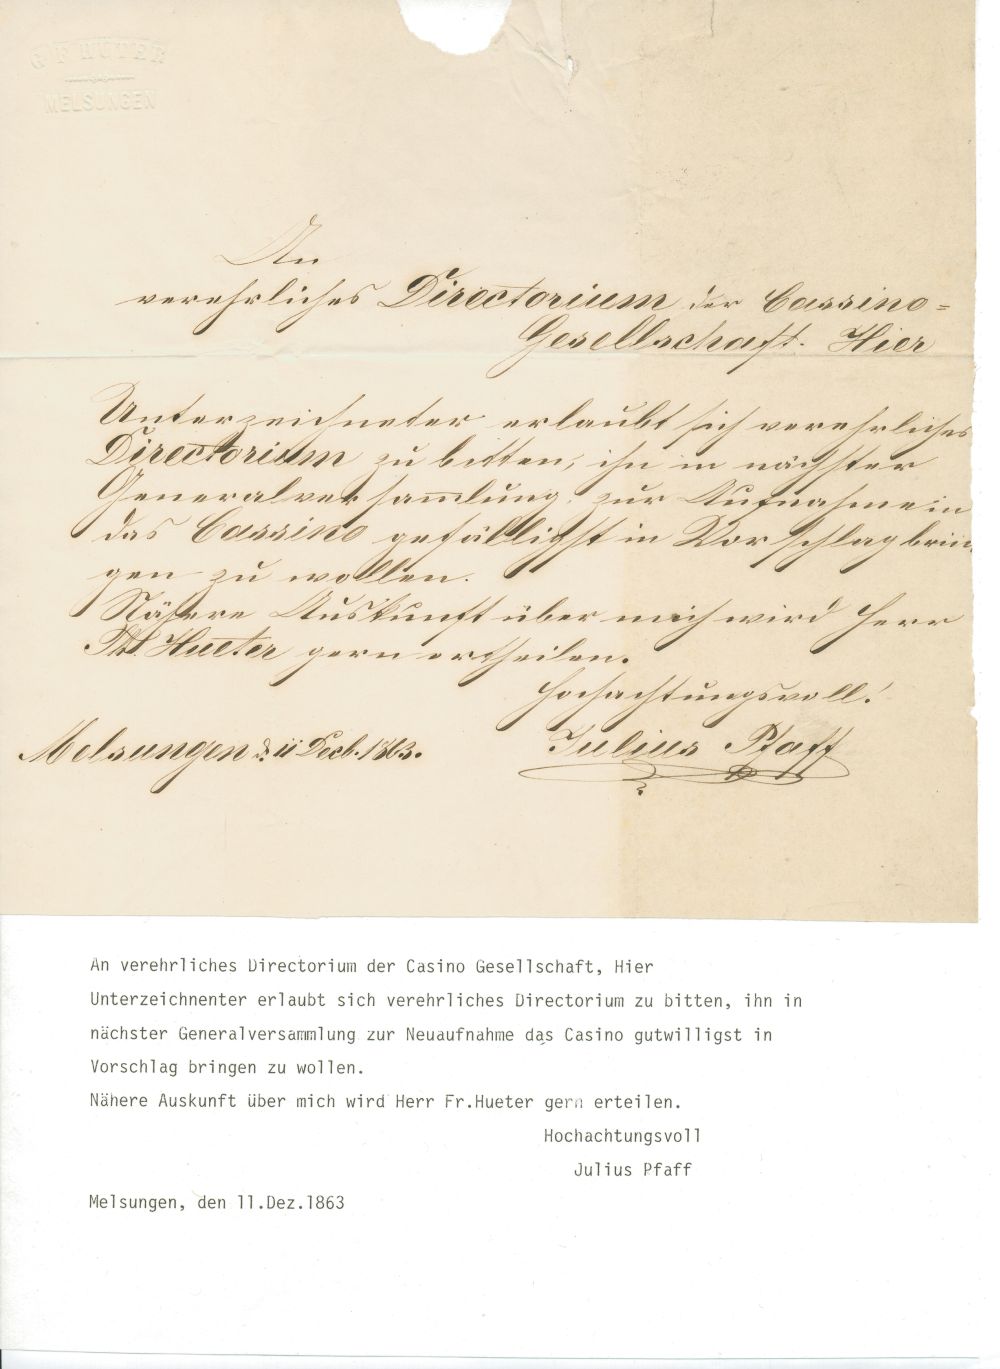 G F HUTER
MELSUNGEN
An
verehrliches Directorium der Cassino=
Gesellschaft. Hier
Unterzeichneter erlaubt sich verehrliches
Directorium zu bitten, ihn in nächster
Generalversammlung zur Aufnahme in
das Cassino gefälligst in Vorschlag brin¬
gen zu wollen.
Nähere Auskunft über mich wird Herr
Hueter gern ertheilen.
Hochachtungsvoll!
Julius Pfaff
Melsungen d. 11 Decb. 1863.
An verehrliches Directorium der Casino Gesellschaft, Hier
Unterzeichnenter erlaubt sich verehrliches Directorium zu bitten, ihn in
nächster Generalversammlung zur Neuaufnahme das Casino gutwilligst in
Vorschlag bringen zu wollen.
Nähere Auskunft über mich wird Herr Fr.Hueter gern erteilen.
Hochachtungsvoll
Julius Pfaff
Melsungen, den 11.Dez.1863